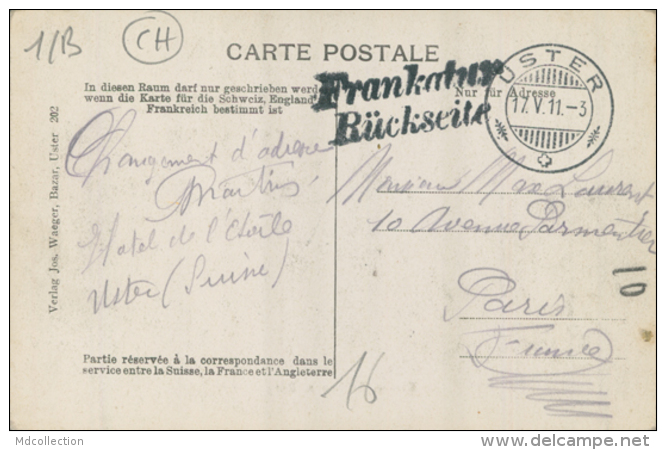 1/B
CH
CARTE POSTALE
In diesen Raum darf nur geschrieben werde
wenn die Karte für die Schweiz, England
Frankreich bestimmt ist
Frankatur
Rückseite
Nur für Adresse
USTER
17.V.11.-3
Verlag Jos. Waeger, Bazar, Uster 202
Changement d'adresse
Martins
Hotel de l'Etoile
Uster (Suisse)
Monsieur Max Laurent
10 Avenue Parmentier
Paris
France
10
16
Partie réservée à la correspondance dans le
service entre la Suisse, la France et l'Angleterre
Mdcollection
www.delcampe.net